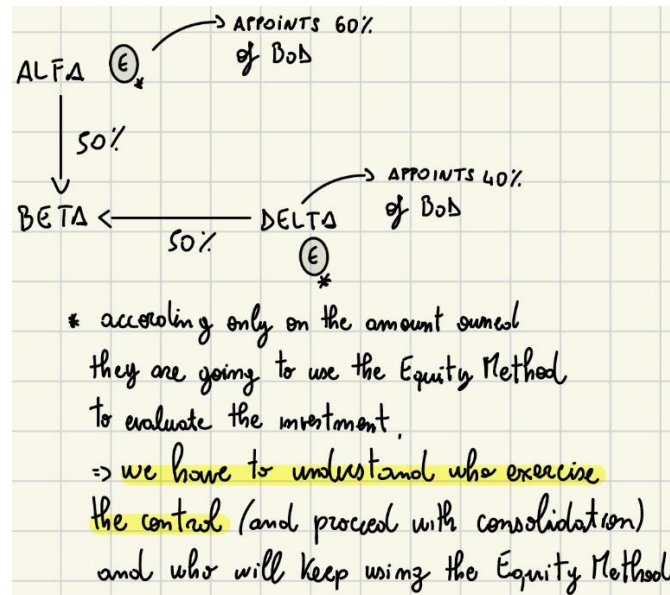 APPOINTS 60%
of BoD
ALFA E *
50%
APPOINTS 40%
of BoD
BETA DELTA
50%
E
*
* according only on the amount owned
they are going to use the Equity Method
to evaluate the investment.
=> we have to understand who exercise
the control (and proceed with consolidation)
and who will keep using the Equity Method